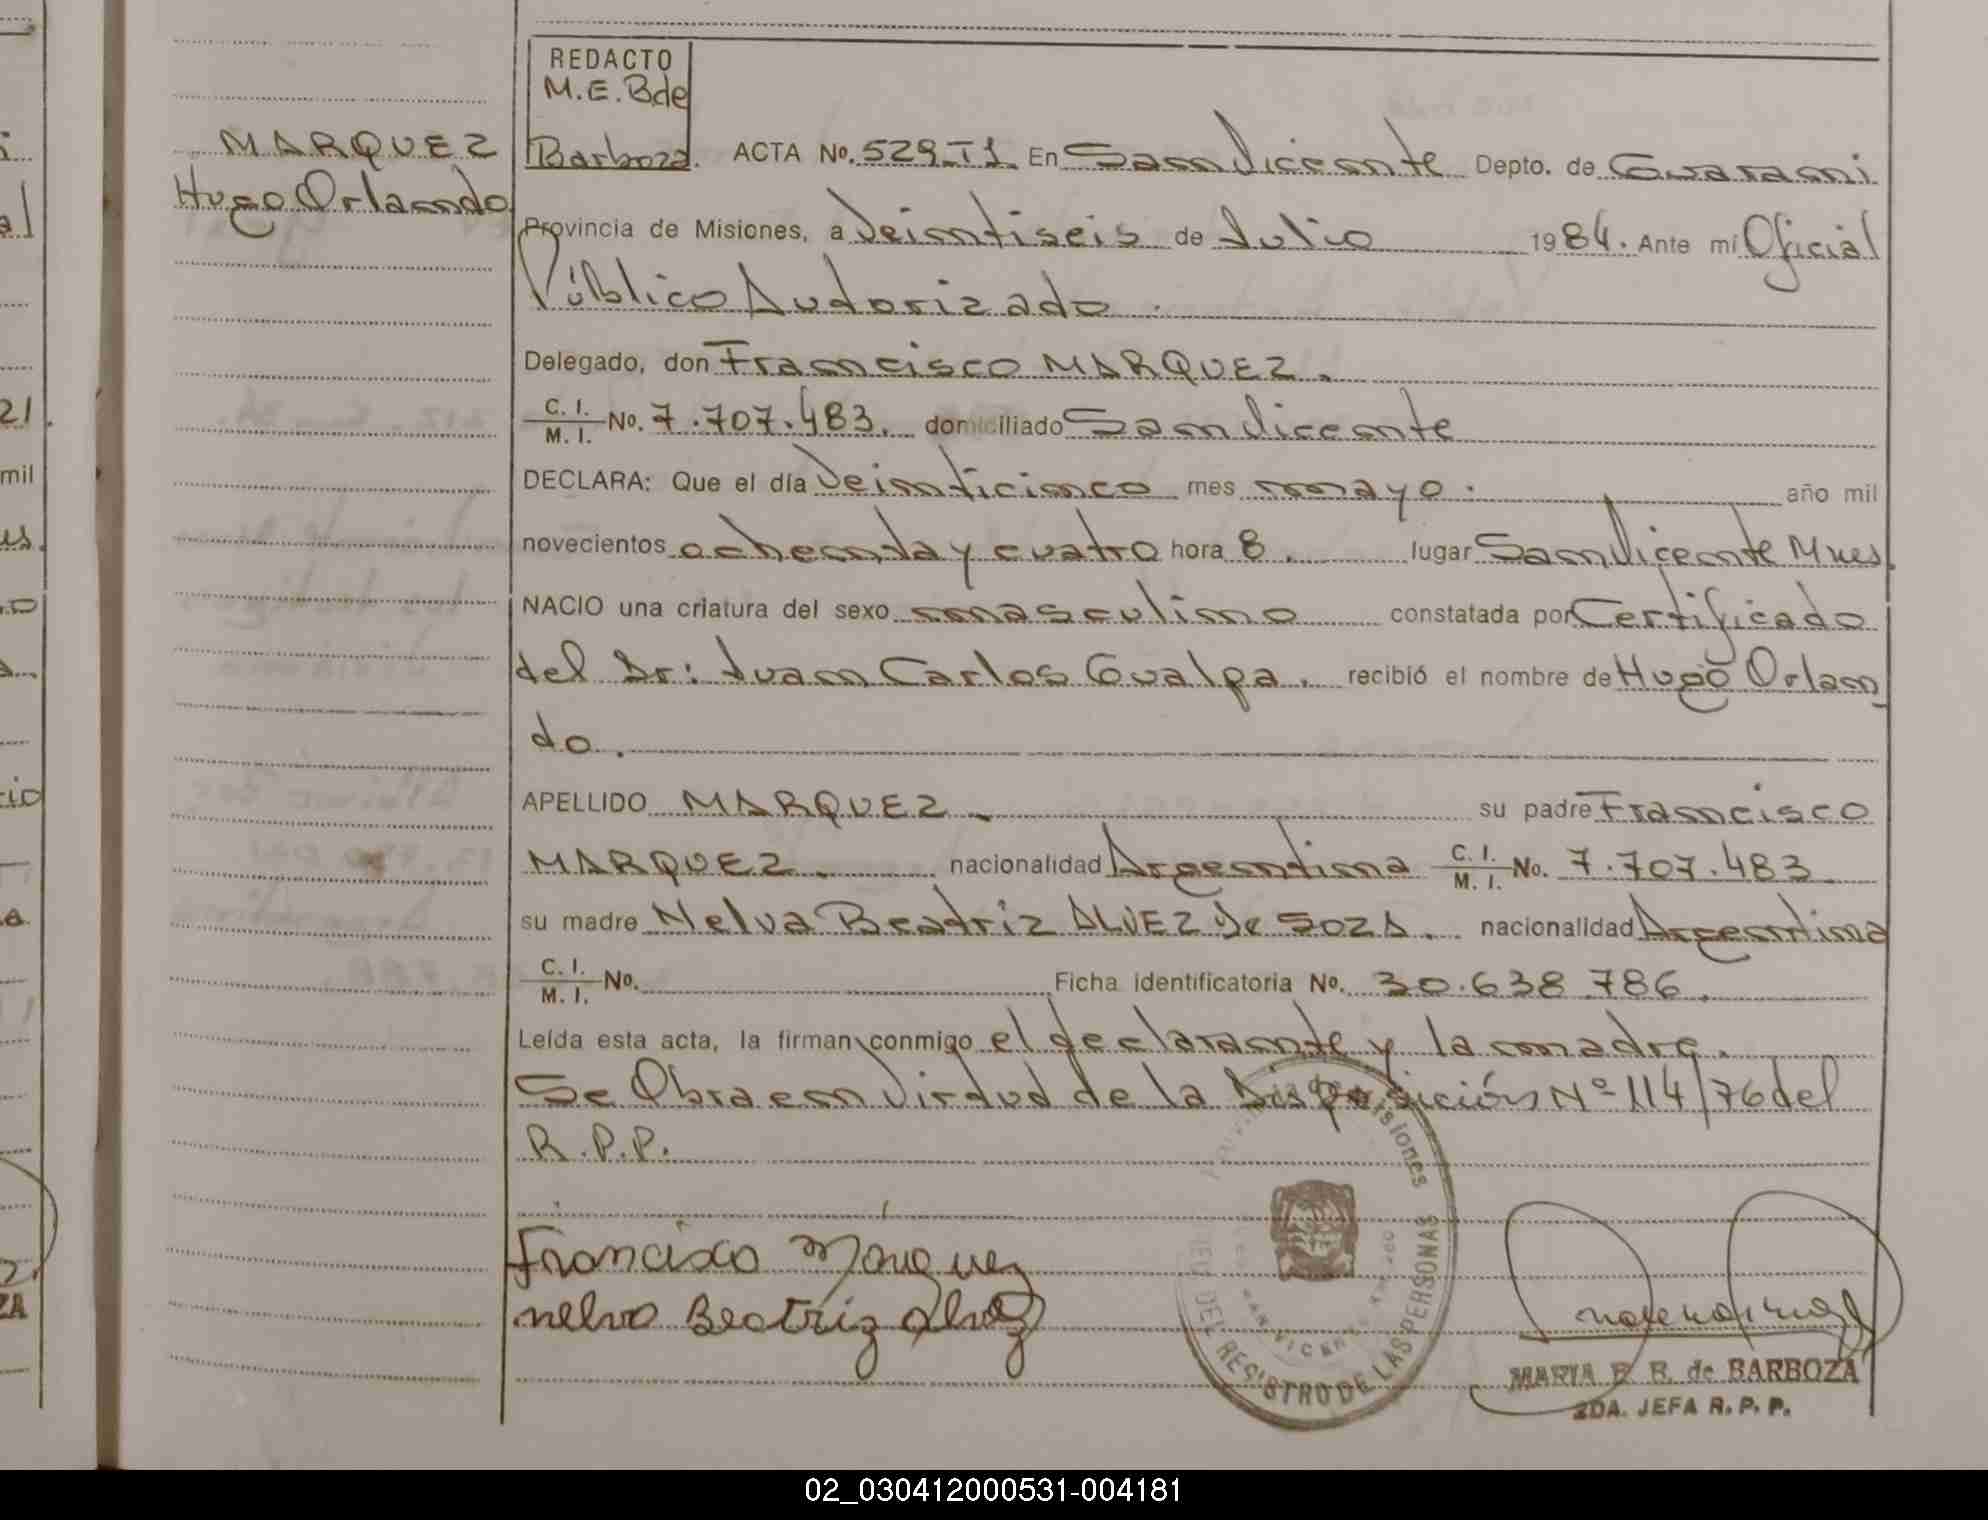 MARQUEZ
Hugo Orlando
REDACTO
M.E.B de
Barboza.
ACTA No. 529_T1 En San Vicente Depto. de Guarani
Provincia de Misiones, a Veintiseis de Julio 1984. Ante mí Oficial
Público Autorizado.
Delegado, don Francisco MARQUEZ.
C. I.
M. I. No. 7.707.483. domiciliado San Vicente
DECLARA: Que el día Veinticinco mes mayo. año mil
novecientos ochenta y cuatro hora 8. lugar San Vicente Mnes.
NACIO una criatura del sexo masculino constatada por Certificado
del Dr: Juan Carlos Gualpa. recibió el nombre de Hugo Orlan
do.
APELLIDO MARQUEZ. su padre Francisco
MARQUEZ. nacionalidad Argentina C. I.
M. I. No. 7.707.483
su madre Nelva Beatriz ALVEZ de SOZA. nacionalidad Argentina
C. I.
M. I. No. Ficha identificatoria No. 30.638.786.
Leída esta acta, la firman conmigo el declarante y la madre.
Se Obra en Virtud de la Disposición Nº 114/76 del
R.P.P.
Francisco Márquez
nelva Beatriz alvez
Misiones
DEL REGISTRO DE LAS PERSONAS
SAN VICENTE
MARIA E. B. de BARBOZA
2DA. JEFA R. P. P.
02_030412000531-004181